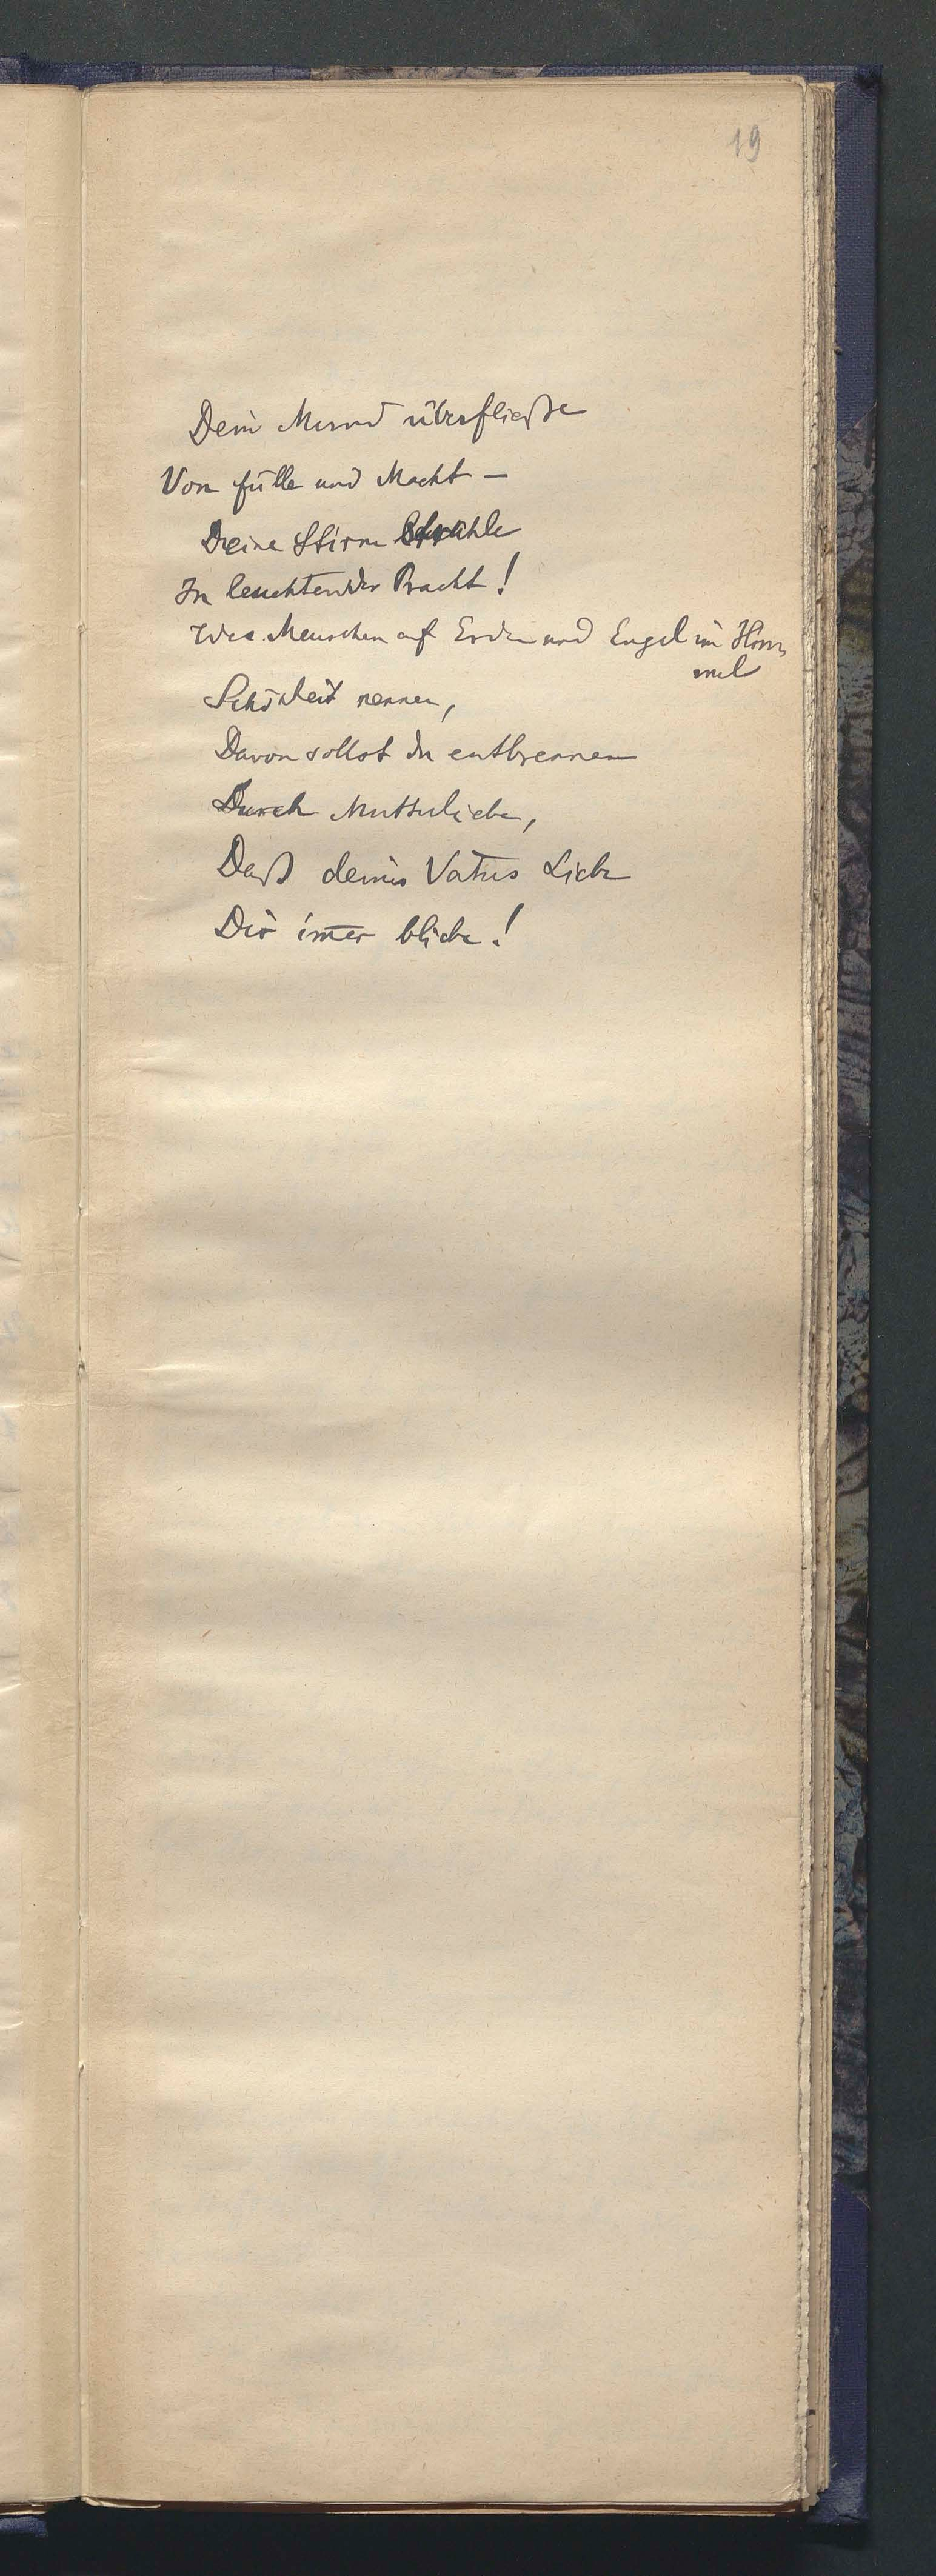 19
Dein Mund überfließe
Von Fülle und Macht –
Deine Stirn strahle
In leuchtender Pracht!
Was Menschen auf Erden und Engel im Him-
mel
Schönheit nennen,
Davon sollst du entbrennen
Durch Mutterliebe,
Daß deines Vaters Liebe
Dir im̅er bliebe!